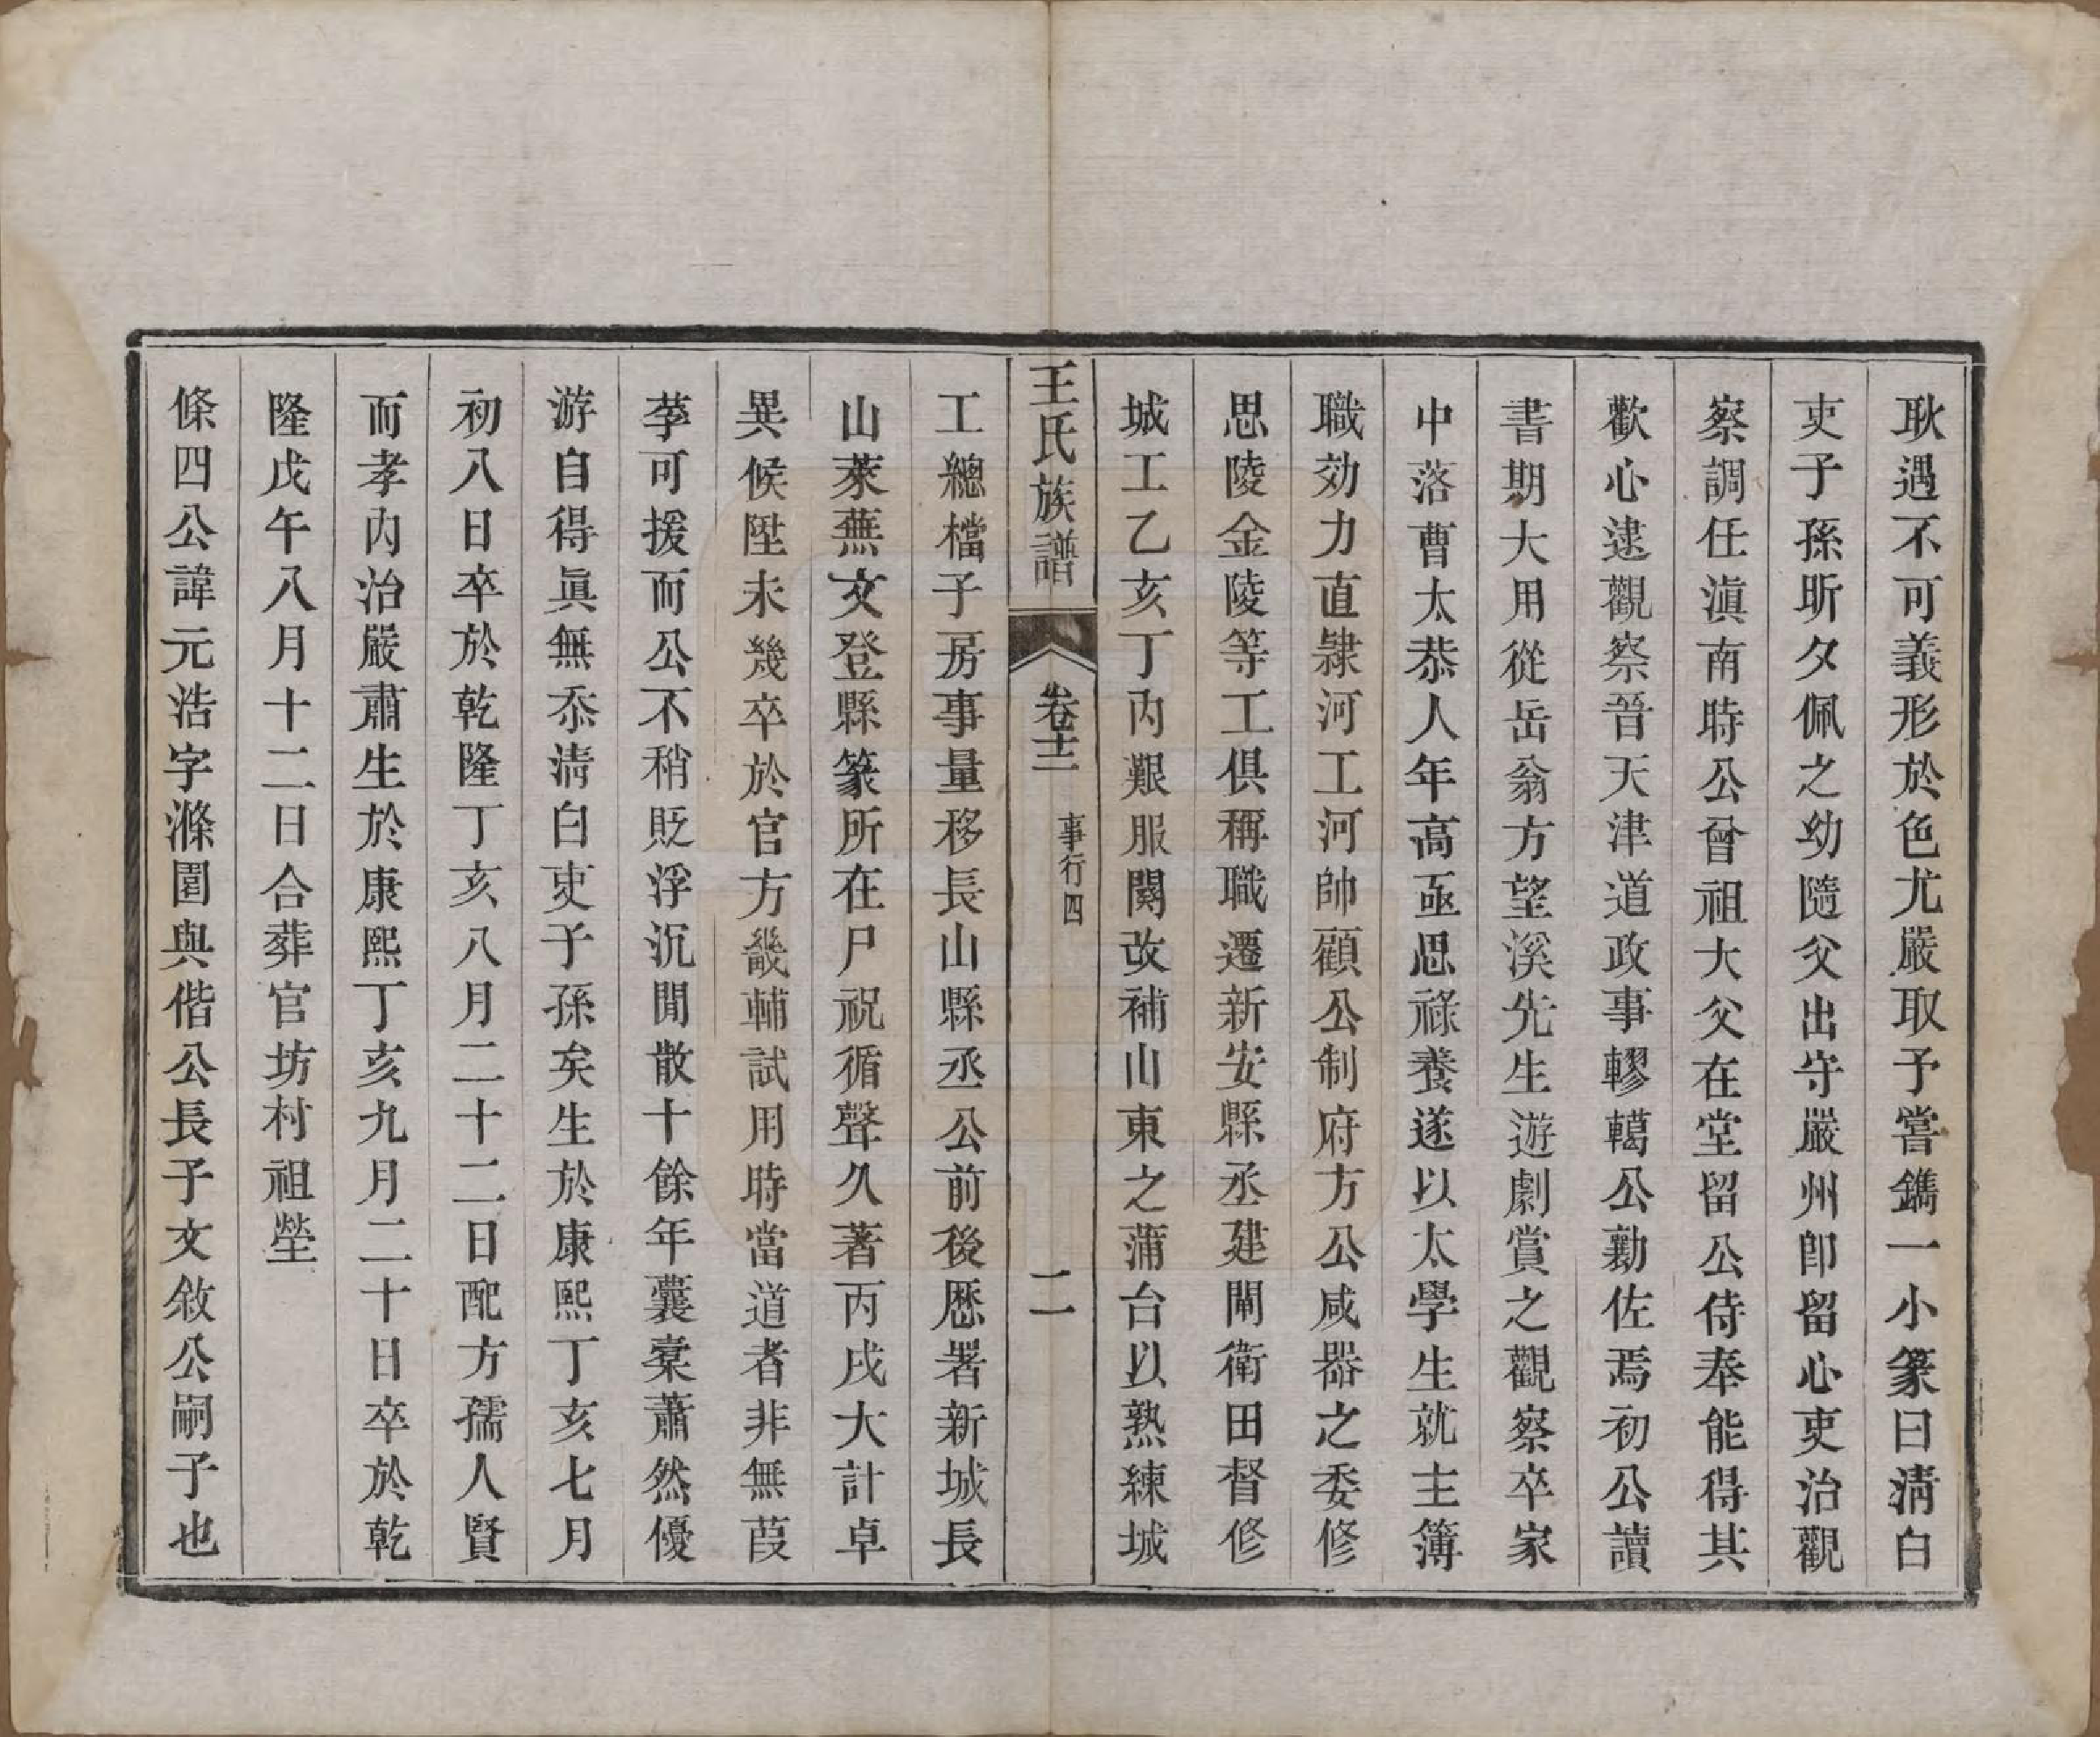 耿遇不可義形於色尤嚴取予嘗鐫一小篆曰淸白
吏子孫昕夕佩之幼隨父出守嚴州卽留心吏治觀
察調任滇南時公曾祖大父在堂留公侍奉能得其
歡心逮觀察晉天津道政事轇轕公勷佐焉初公讀
書期大用從岳翁方望溪先生遊劇賞之觀察卒家
中落曹太恭人年高亟思祿養遂以太學生就主簿
職効力直隸河工河帥顧公制府方公咸器之委修
思陵金陵等工俱稱職遷新安縣丞建閘衛田督修
城工乙亥丁內艱服闋改補山東之蒲台以熟練城
王氏族譜
卷十二
事行四
二
工總檔子房事量移長山縣丞公前後歷署新城長
山萊蕪文登縣篆所在尸祝循聲久著丙戌大計卓
異候陞未幾卒於官方畿輔試用時當道者非無葭
莩可援而公不稍貶浮沉閒散十餘年囊橐蕭然優
游自得眞無忝淸白吏子孫矣生於康熙丁亥七月
初八日卒於乾隆丁亥八月二十二日配方孺人賢
而孝內治嚴肅生於康熙丁亥九月二十日卒於乾
隆戊午八月十二日合葬官坊村祖塋
條四公諱元浩字滌園與偕公長子文敘公嗣子也